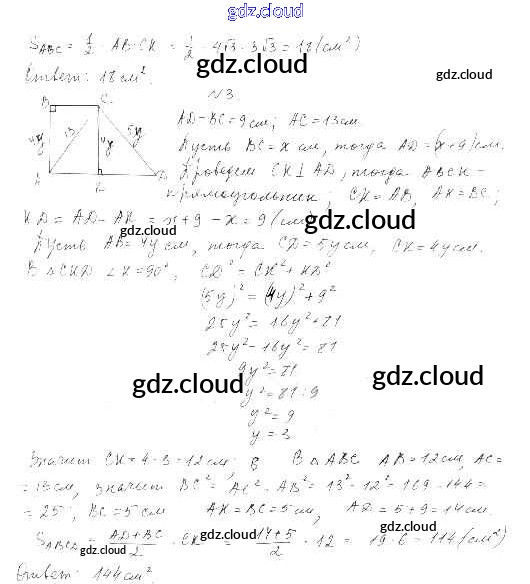 gdz.cloud
S_ABC = 1/2 · AB · CK = 1/2 · 4√3 · 3√3 = 18 (см²)
Ответ: 18 см².
gdz.cloud
gdz.cloud
N3.
B C
AD - BC = 9 см; AC = 13 см.
4y 13 4y 5y
Пусть BC = x см, тогда AD = (x+9) см.
Проведем CK ⊥ AD, тогда ABCK -
A K D
прямоугольник; CK = AB, AK = BC;
KD = AD - AK = x + 9 - x = 9 (см)
gdz.cloud
gdz.cloud
Пусть AB = 4y см, тогда CD = 5y см, CK = 4y см.
В △CKD ∠K = 90°, CD² = CK² + KD²
(5y)² = (4y)² + 9²
25y² = 16y² + 81
25y² - 16y² = 81
9y² = 81
gdz.cloud
gdz.cloud
y² = 81 : 9
y² = 9
y = 3
Значит CK = 4 · 3 = 12 см, В △ABC AB = 12 см, AC =
= 13 см, значит BC² = AC² - AB² = 13² - 12² = 169 - 144 =
= 25, BC = 5 см AK = BC = 5 см, AD = 5 + 9 = 14 см.
gdz.cloud
S_ABCD = (AD+BC)/2 · CK = (14+5)/2 · 12 = 19 · 6 = 114 (см²)
gdz.cloud
gdz.cloud
Ответ: 144 см².